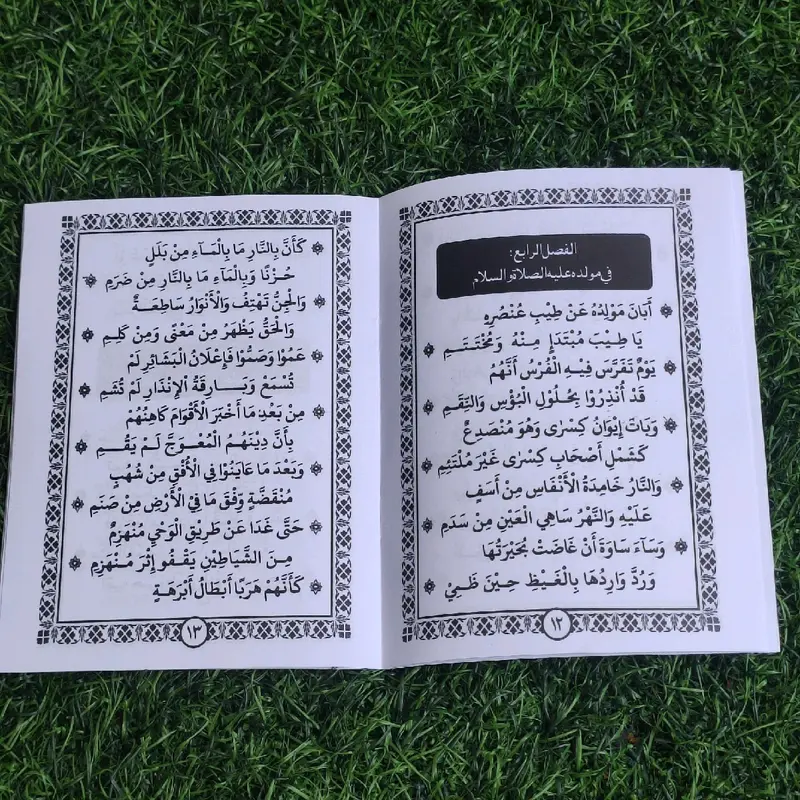 الفصل الرابع:
في مولده عليه الصلاة والسلام
أَبَانَ مَوْلِدُهُ عَنْ طِيْبِ عُنْصُرِهِ
يَا طِيْبَ مُبْتَدَإٍ مِنْهُ وَمُخْتَتَمِ
يَوْمٌ تَفَرَّسَ فِيْهِ الْفُرْسُ أَنَّهُمُ
قَدْ أُنْذِرُوْا بِحُلُوْلِ الْبُؤْسِ وَالنِّقَمِ
وَبَاتَ إِيْوَانُ كِسْرٰى وَهُوَ مُنْصَدِعٌ
كَشَمْلِ أَصْحَابِ كِسْرٰى غَيْرَ مُلْتَئِمِ
وَالنَّارُ خَامِدَةُ الْأَنْفَاسِ مِنْ أَسَفٍ
عَلَيْهِ وَالنَّهْرُ سَاهِي الْعَيْنِ مِنْ سَدَمِ
وَسَآءَ سَاوَةَ أَنْ غَاضَتْ بُحَيْرَتُهَا
وَرُدَّ وَارِدُهَا بِالْغَيْظِ حِيْنَ ظَمِيْ
١٢
كَأَنَّ بِالنَّارِ مَا بِالْمَآءِ مِنْ بَلَلٍ
حُزْنًا وَبِالْمَآءِ مَا بِالنَّارِ مِنْ ضَرَمِ
وَالْجِنُّ تَهْتِفُ وَالْأَنْوَارُ سَاطِعَةٌ
وَالْحَقُّ يَظْهَرُ مِنْ مَعْنًى وَمِنْ كَلِمِ
عَمُوْا وَصَمُّوْا فَإِعْلَانُ الْبَشَائِرِ لَمْ
تُسْمَعْ وَبَارِقَةُ الْإِنْذَارِ لَمْ تُشَمِ
مِنْ بَعْدِ مَا أَخْبَرَ الْأَقْوَامَ كَاهِنُهُمْ
بِأَنَّ دِيْنَهُمُ الْمُعْوَجَّ لَمْ يَقُمِ
وَبَعْدَ مَا عَايَنُوْا فِي الْأُفْقِ مِنْ شُهُبٍ
مُنْقَضَّةٍ وَفْقَ مَا فِي الْأَرْضِ مِنْ صَنَمِ
حَتَّى غَدَا عَنْ طَرِيْقِ الْوَحْيِ مُنْهَزِمٌ
مِنَ الشَّيَاطِيْنِ يَقْفُو إِثْرَ مُنْهَزِمِ
كَأَنَّهُمْ هَرَبًا أَبْطَالُ أَبْرَهَةٍ
١٣